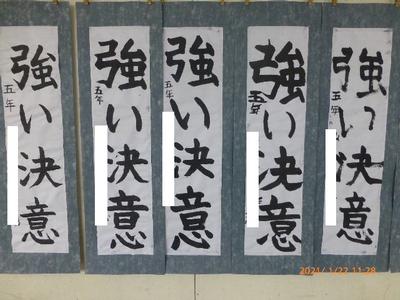 強い決意
五年
強い決意
五年
強い決意
五年
強い決意
五年
強い決意
五年
2021/1/22 11:28